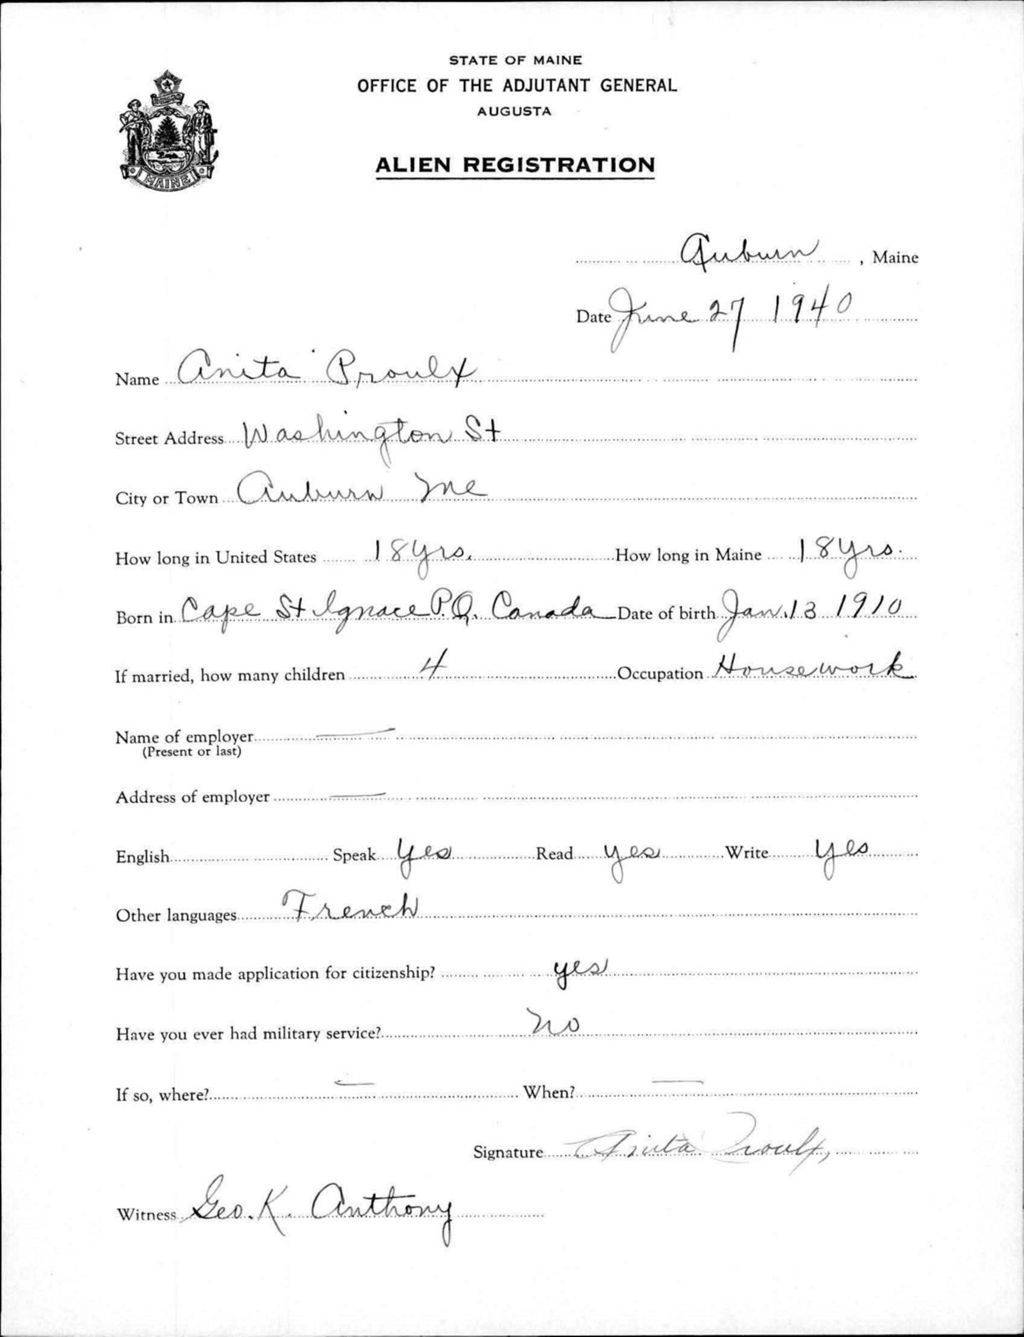 STATE OF MAINE
OFFICE OF THE ADJUTANT GENERAL
AUGUSTA
ALIEN REGISTRATION
MAINE
Auburn, Maine
Date June 27 1940
Name Anita Proulx
Street Address Washington St
City or Town Auburn Me
How long in United States 18 yrs. How long in Maine 18 yrs.
Born in Cape St Ignace P.Q. Canada Date of birth Jan. 13 1910
If married, how many children 4 Occupation Housework
Name of employer —
(Present or last)
Address of employer —
English Speak yes Read yes Write yes
Other languages French
Have you made application for citizenship? yes
Have you ever had military service? no
If so, where? — When? —
Signature Anita Proulx,
Witness Geo. K. Anthony